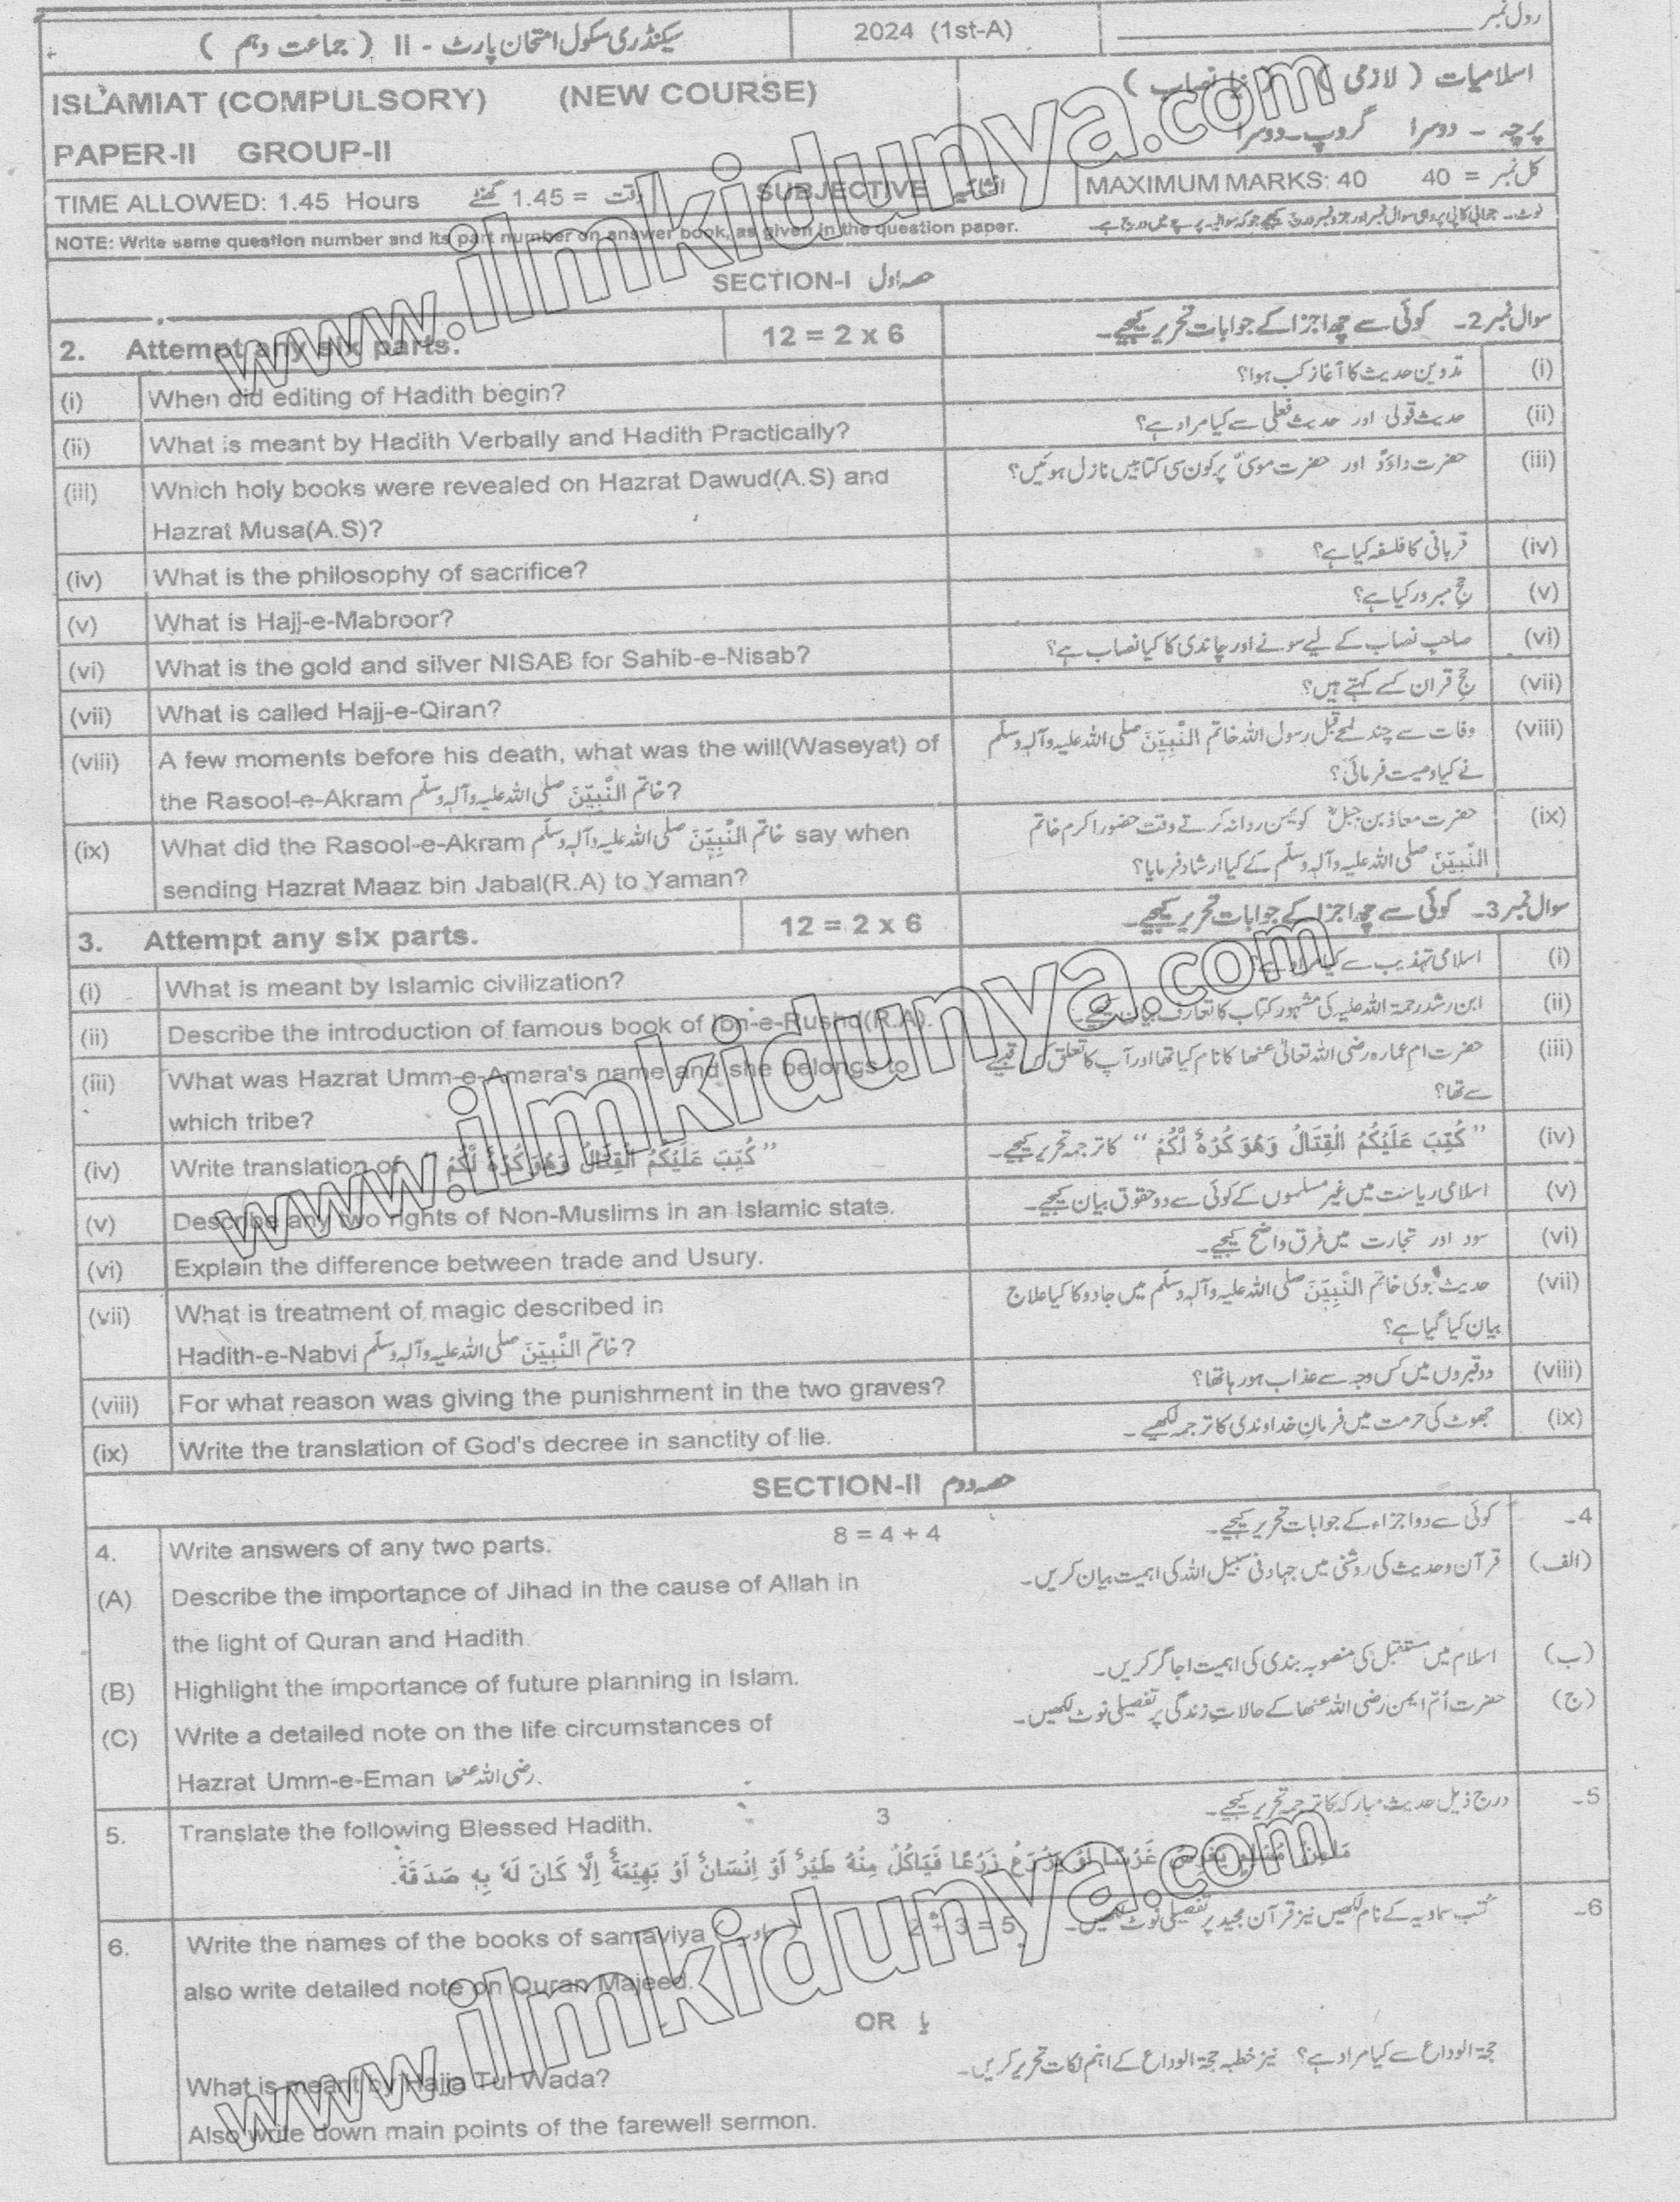 سیکنڈری سکول امتحان پارٹ - II ( جماعت دہم )
2024 (1st-A)
رول نمبر
ISLAMIAT (COMPULSORY) (NEW COURSE)
اسلامیات ( لازمی )
PAPER-II GROUP-II
پرچہ - دوسرا گروپ-دوسرا
TIME ALLOWED: 1.45 Hours وقت = 1.45 گھنٹے
SUBJECTIVE انشائیہ
MAXIMUM MARKS: 40 کل نمبر = 40
NOTE: Write same question number and its part number on answer book, as given in the question paper.
نوٹ۔ جوابی کاپی پر وہی سوال نمبر اور جزو نمبر درج کیجیے جو کہ سوالیہ پرچے میں درج ہے۔
SECTION-I حصہ اول
2. Attempt any six parts. 12 = 2 x 6 سوال نمبر 2۔ کوئی سے چھ اجزا کے جوابات تحریر کیجیے۔
(i) When did editing of Hadith begin? تدوین حدیث کا آغاز کب ہوا؟ (i)
(ii) What is meant by Hadith Verbally and Hadith Practically? حدیث قولی اور حدیث فعلی سے کیا مراد ہے؟ (ii)
(iii) Which holy books were revealed on Hazrat Dawud(A.S) and حضرت داؤدؑ اور حضرت موسیٰؑ پر کون سی کتابیں نازل ہوئیں؟ (iii)
Hazrat Musa(A.S)?
(iv) What is the philosophy of sacrifice? قربانی کا فلسفہ کیا ہے؟ (iv)
(v) What is Hajj-e-Mabroor? حج مبرور کیا ہے؟ (v)
(vi) What is the gold and silver NISAB for Sahib-e-Nisab? صاحبِ نصاب کے لیے سونے اور چاندی کا کیا نصاب ہے؟ (vi)
(vii) What is called Hajj-e-Qiran? حج قران کسے کہتے ہیں؟ (vii)
(viii) A few moments before his death, what was the will(Waseyat) of وفات سے چند لمحے قبل رسول اللہ خاتم النَّبِیّٖنَ صلی اللہ علیہ وآلہٖ وسلّم (viii)
the Rasool-e-Akram خاتم النَّبِیّٖنَ صلی اللہ علیہ وآلہٖ وسلّم? نے کیا وصیت فرمائی؟
(ix) What did the Rasool-e-Akram خاتم النَّبِیّٖنَ صلی اللہ علیہ وآلہٖ وسلّم say when حضرت معاذ بن جبلؓ کو یمن روانہ کرتے وقت حضور اکرم خاتم (ix)
sending Hazrat Maaz bin Jabal(R.A) to Yaman? النَّبِیّٖنَ صلی اللہ علیہ وآلہٖ وسلّم کے کیا ارشاد فرمایا؟
3. Attempt any six parts. 12 = 2 x 6 سوال نمبر 3۔ کوئی سے چھ اجزا کے جوابات تحریر کیجیے۔
(i) What is meant by Islamic civilization? اسلامی تہذیب سے کیا (i)
(ii) Describe the introduction of famous book of Ibn-e-Rushd(R.A). ابن رشد رحمۃ اللہ علیہ کی مشہور کتاب کا تعارف بیان کیجیے۔ (ii)
(iii) What was Hazrat Umm-e-Amara's name and she belongs to حضرت ام عمارہ رضی اللہ تعالیٰ عنھا کا نام کیا تھا اور آپ کا تعلق کس قبیلے (iii)
which tribe? سے تھا؟
(iv) Write translation of " کُتِبَ عَلَیْکُمُ الْقِتَالُ وَھُوَ کُرْہٌ لَّکُمْ " " کُتِبَ عَلَیْکُمُ الْقِتَالُ وَھُوَ کُرْہٌ لَّکُمْ " کا ترجمہ تحریر کیجیے۔ (iv)
(v) Describe any two rights of Non-Muslims in an Islamic state. اسلامی ریاست میں غیر مسلموں کے کوئی سے دو حقوق بیان کیجیے۔ (v)
(vi) Explain the difference between trade and Usury. سود اور تجارت میں فرق واضح کیجیے۔ (vi)
(vii) What is treatment of magic described in حدیث نبوی خاتم النَّبِیّٖنَ صلی اللہ علیہ وآلہٖ وسلّم میں جادو کا کیا علاج (vii)
Hadith-e-Nabvi خاتم النَّبِیّٖنَ صلی اللہ علیہ وآلہٖ وسلّم? بیان کیا گیا ہے؟
(viii) For what reason was giving the punishment in the two graves? دو قبروں میں کس وجہ سے عذاب ہو رہا تھا؟ (viii)
(ix) Write the translation of God's decree in sanctity of lie. جھوٹ کی حرمت میں فرمانِ خداوندی کا ترجمہ لکھیے۔ (ix)
SECTION-II حصہ دوم
4. Write answers of any two parts. 8 = 4 + 4 کوئی سے دو اجزاء کے جوابات تحریر کیجیے۔ 4۔
(A) Describe the importance of Jihad in the cause of Allah in قرآن و حدیث کی روشنی میں جہاد فی سبیل اللہ کی اہمیت بیان کریں۔ (الف)
the light of Quran and Hadith.
(B) Highlight the importance of future planning in Islam. اسلام میں مستقبل کی منصوبہ بندی کی اہمیت اجاگر کریں۔ (ب)
(C) Write a detailed note on the life circumstances of حضرت اُمّ ایمن رضی اللہ عنھا کے حالاتِ زندگی پر تفصیلی نوٹ لکھیں۔ (ج)
Hazrat Umm-e-Eman رضی اللہ عنھا.
5. Translate the following Blessed Hadith. 3 درج ذیل حدیث مبارکہ کا ترجمہ تحریر کیجیے۔ 5۔
مَا مِنْ مُّسْلِمٍ یَغْرِسُ غَرْسًا اَوْ یَزْرَعُ زَرْعًا فَیَاْکُلُ مِنْہُ طَیْرٌ اَوْ اِنْسَانٌ اَوْ بَھِیْمَۃٌ اِلَّا کَانَ لَہٗ بِہٖ صَدَقَۃٌ.
6. Write the names of the books of samaviya 2 + 3 = 5 کتب سماویہ کے نام لکھیں نیز قرآن مجید پر تفصیلی نوٹ لکھیں۔ 6۔
also write detailed note on Quran Majeed.
OR یا
What is meant by Hajja Tul Wada? حجۃ الوداع سے کیا مراد ہے؟ نیز خطبہ حجۃ الوداع کے اہم نکات تحریر کریں۔
Also write down main points of the farewell sermon.
www.ilmkidunya.com
www.ilmkidunya.com
www.ilmkidunya.com